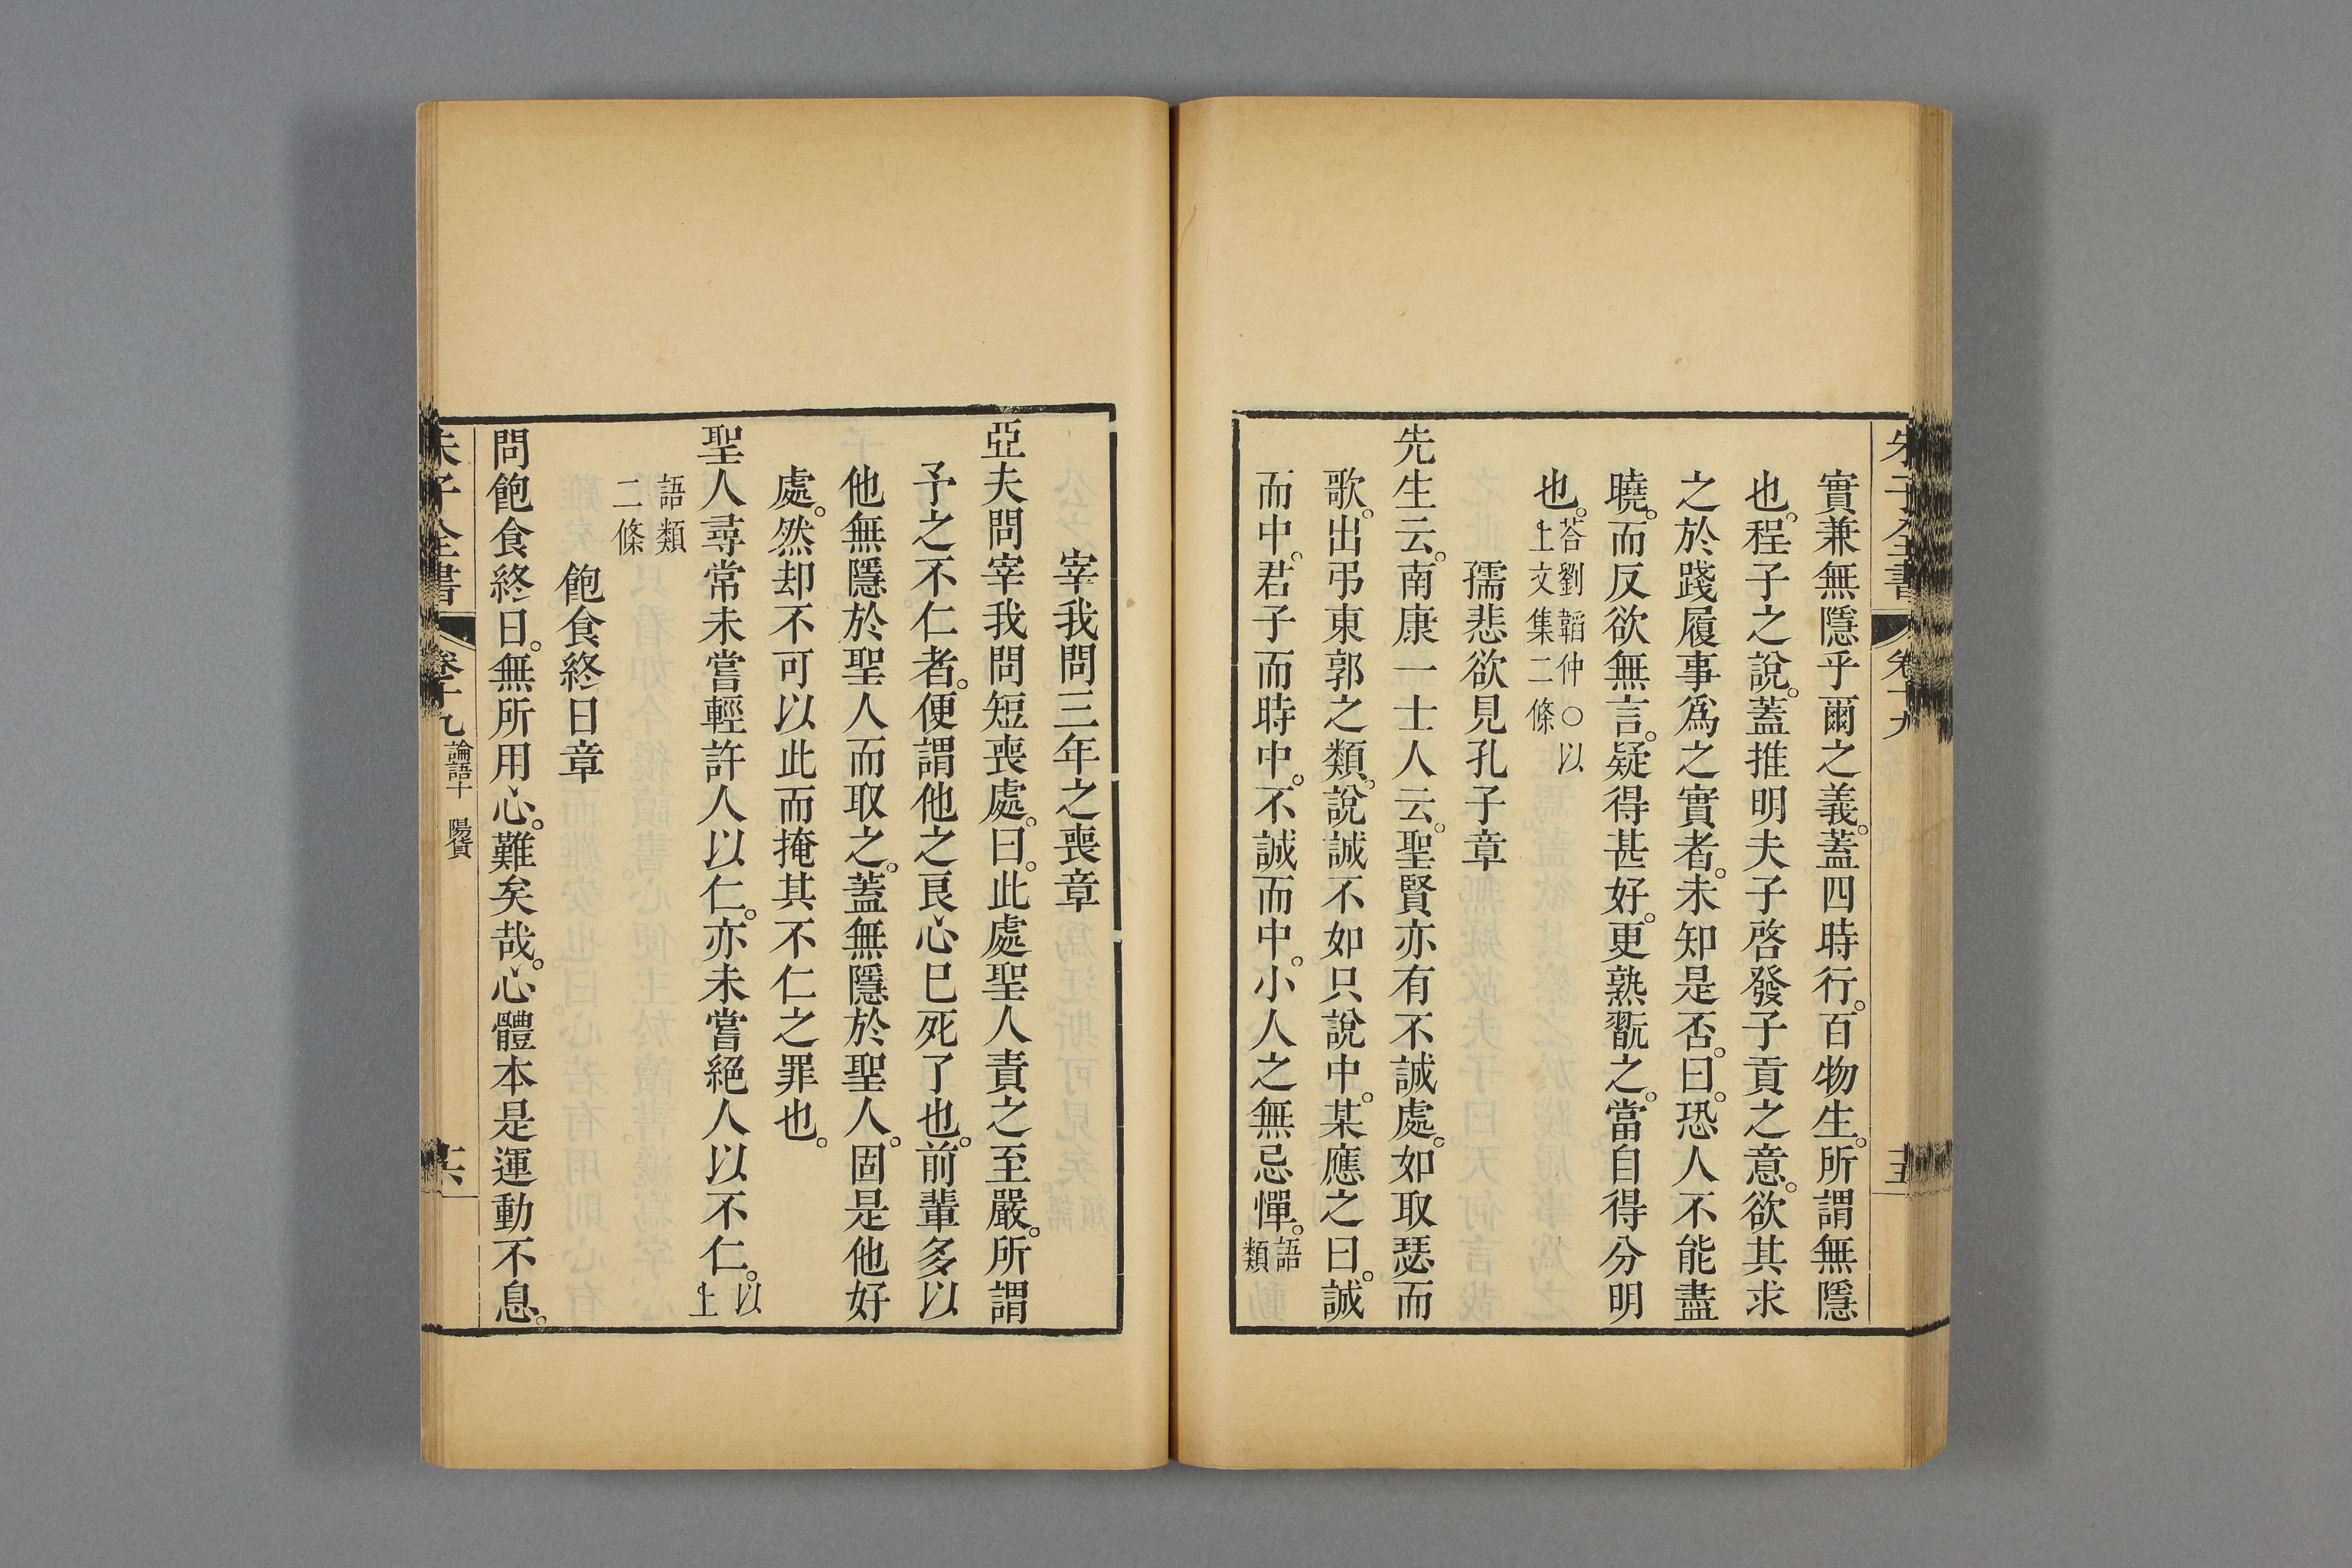 朱子全書 卷十九 十五
實兼無隱乎爾之義。蓋四時行。百物生。所謂無隱
也。程子之說。蓋推明夫子啓發子貢之意。欲其求
之於踐履事爲之實者。未知是否。曰。恐人不能盡
曉。而反欲無言。疑得甚好。更熟翫之。當自得分明
也。荅劉韜仲○以上文集二條
孺悲欲見孔子章
先生云。南康一士人云。聖賢亦有不誠處。如取瑟而
歌。出弔東郭之類。說誠不如只說中。某應之曰。誠
而中。君子而時中。不誠而中。小人之無忌憚。語類
宰我問三年之喪章
亞夫問宰我問短喪處。曰。此處聖人責之至嚴。所謂
予之不仁者。便謂他之良心已死了也。前輩多以
他無隱於聖人而取之。蓋無隱於聖人。固是他好
處。然却不可以此而掩其不仁之罪也。
聖人尋常未嘗輕許人以仁。亦未嘗絕人以不仁。以上
語類二條
飽食終日章
問飽食終日。無所用心。難矣哉。心體本是運動不息。
朱子全書 卷十九 論語十 陽貨 十六